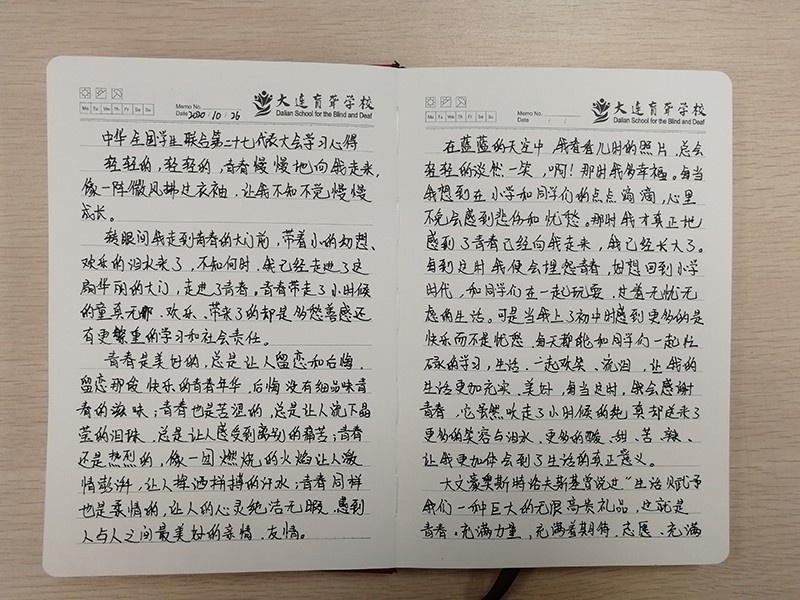 Mo Tu We Th Fr Sa Su
Memo No.
Date 2020 / 10 / 26
大连盲聋学校
Dalian School for the Blind and Deaf
中华全国学生联合第二十七代表大会学习心得
轻轻的,轻轻的,青春慢慢地向我走来,
像一阵微风拂过衣袖,让我不知不觉慢慢
成长。
转眼间我走到青春的大门前,带着小的幻想、
欢乐的泪水来了,不知何时,我已经走进了这
扇华丽的大门,走进了青春。青春带走了小时候
的童真无邪、欢乐、带来了的却是多愁善感还
有更繁重的学习和社会责任。
青春是美好的,总是让人留恋和后悔,
留恋那段快乐的青春年华,后悔没有细品味青
春的滋味;青春也是苦涩的,总是让人流下晶
莹的泪珠,总是让人感受到离别的痛苦;青春
还是热烈的,像一团燃烧的火焰让人激
情澎湃,让人挥洒拼搏的汗水;青春同样
也是柔情的,让人的心灵纯洁无暇,感到
人与人之间最美好的亲情、友情。
Mo Tu We Th Fr Sa Su
Memo No.
Date / /
大连盲聋学校
Dalian School for the Blind and Deaf
在蓝蓝的天空中,我看着儿时的照片,总会
轻轻的淡然一笑,啊!那时我多幸福。每当
我想到在小学和同学们的点点滴滴,心里
不免会感到悲伤和忧愁。那时我才真正地
感到了青春已经向我走来,我已经长大了。
每到这时我便会埋怨青春,想回到小学
时代,和同学们在一起玩耍,过着无忧无
虑的生活。可是当我上了初中时感到更多的是
快乐而不是忧愁,每天都能和同学们一起忙
碌的学习,生活,一起欢笑、流泪,让我的
生活更加充实、美好,每当这时,我会感谢
青春,它虽然吹走了小时候的纯真却送来了
更多的笑容与泪水、更多的酸、甜、苦、辣、
让我更加体会到了生活的真正意义。
大文豪奥斯特洛夫斯基曾说过"生活赋予
我们一种巨大的无限高贵礼品,这就是
青春。充满力量,充满着期待,志愿、充满